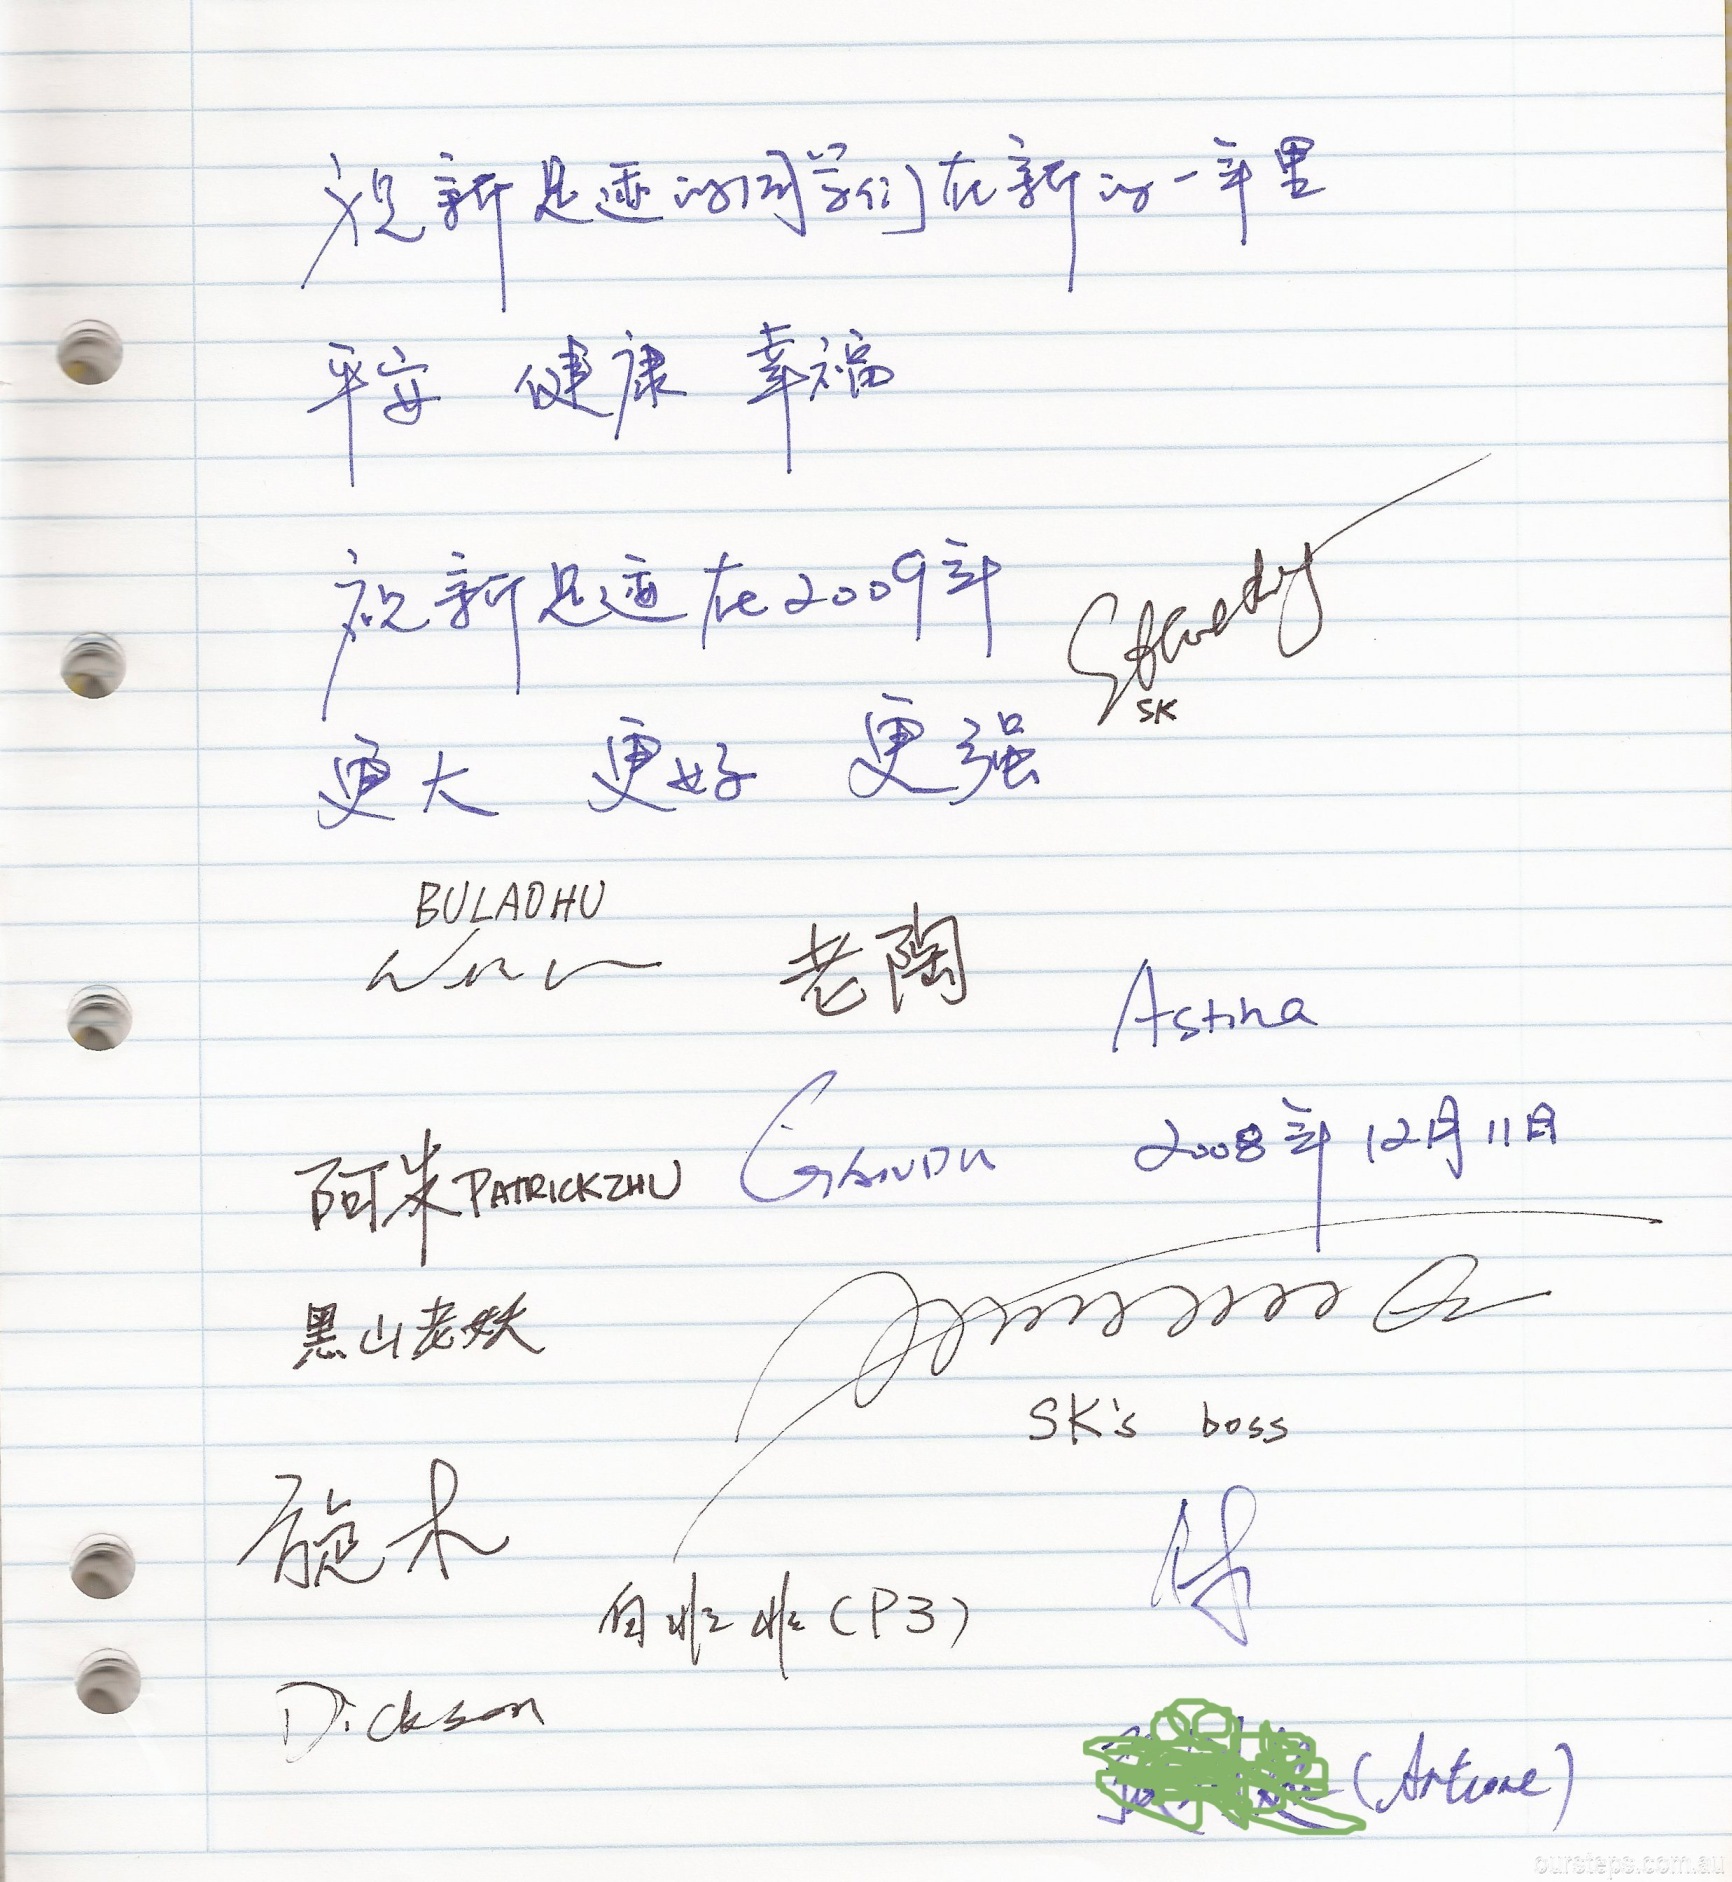 祝新足迹的同学们在新的一年里
平安 健康 幸福
祝新足迹在2009年
SK
更大 更好 更强
BULAOHU
老陶
Astina
阿米 PATRICKZHU
GANDU
2008年12月11日
黑山老妖
SK's boss
旋木
(P3)
Dickson
(Artune)
oursteps.com.au